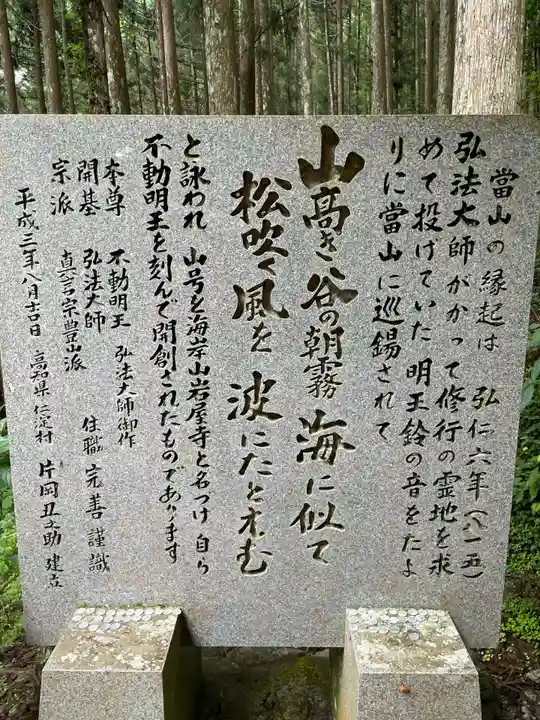 當山の縁起は 弘仁六年(八一五)
弘法大師がかって修行の霊地を求
めて投げていた明王鈴の音をたよ
りに當山に巡錫されて
山高き谷の朝霧海に似て
松吹く風を波にたとえむ
と詠われ 山号を海岸山岩屋寺と名づけ 自ら
不動明王を刻んで開創されたものであります
本尊 不動明王 弘法大師御作
開基 弘法大師
宗派 真言宗豊山派 住職 完善 謹識
平成三年八月吉日 高知県仁淀村 片岡丑之助 建立